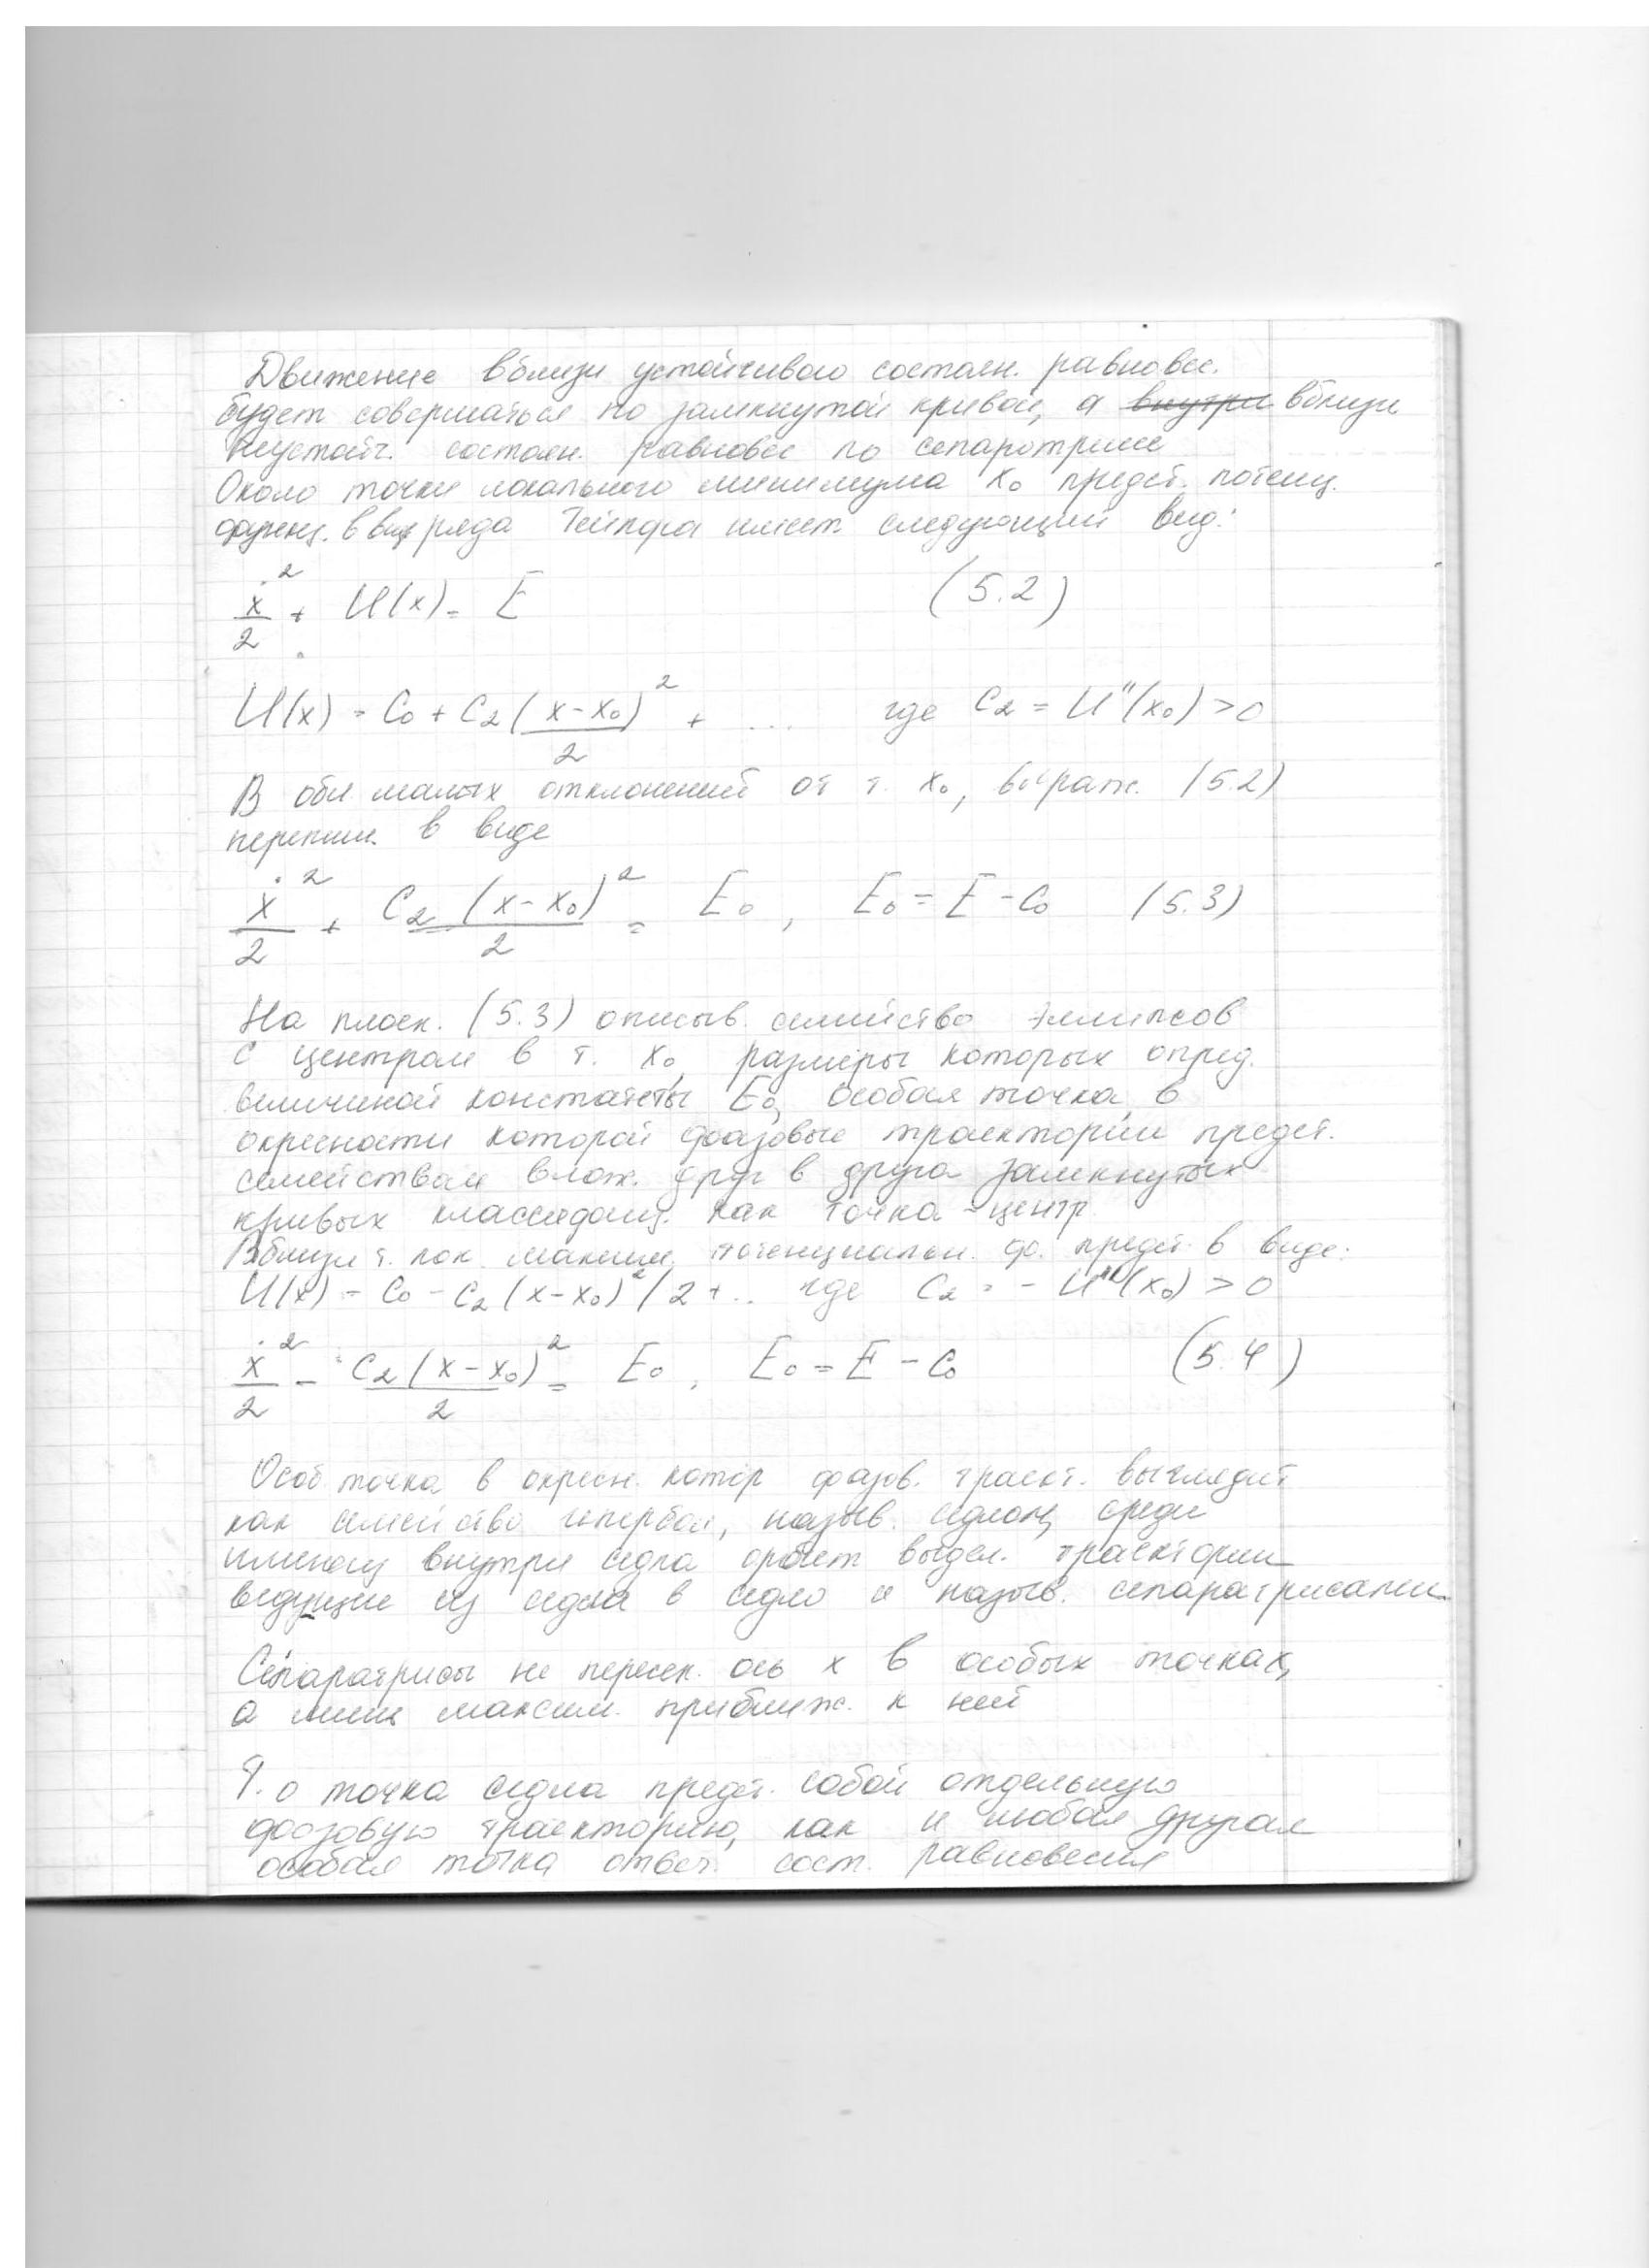 Движение вблизи устойчивого состоян. равновес.
будет совершаться по замкнутой кривой, а внутри вблизи
неустойч. состоян. равновес по сепаротрисе
Около точки локального минимума x₀ предст. потенц.
функц. в виде ряда Тейлора имеет следующий вид:
ẋ²/2 + U(x) = E (5.2)
U(x) = C₀ + C₂(x-x₀)²/2 + ... где C₂ = U''(x₀) > 0
В обл малых отклонений от т. x₀, выраж. (5.2)
перепиш. в виде
ẋ²/2 + C₂(x-x₀)²/2 = E₀, E₀ = E - C₀ (5.3)
На плоск. (5.3) описыв. семейство эллипсов
с центром в т. x₀, размеры которых опред.
величиной константы E₀, особая точка, в
окресности которой фазовые траектории предст.
семейством влож. друг в друга замкнутых
кривых классифиц. как точка - центр
Вблизи т. лок. максим. потенциальн. ф. предст. в виде:
U(x) = C₀ - C₂(x-x₀)²/2 + .. где C₂ = - U''(x₀) > 0
ẋ²/2 - C₂(x-x₀)²/2 = E₀, E₀ = E - C₀ (5.4)
Особ. точка в окресн. котор фазов. траект. выглядит
как семейство гипербол, назыв. седлом, среди
внутри седла выдел. траектории
ведущие из седла в седло и назыв. сепаратрисами
Сепаратрисы не перссек. ось x в особых точках,
а лишь максим. приближ. к ней
Т. о точка седла предст. собой отдельную
фазовую траекторию, как и любая другая
особая точка отвеч. сост. равновесия